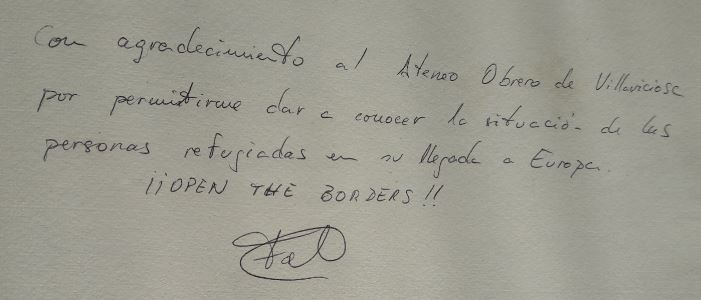 Con agradecimiento al Ateneo Obrero de Villaviciosa
por permitirme dar a conocer la situación de las
personas refugiadas en su llegada a Europa.
¡¡OPEN THE BORDERS!!